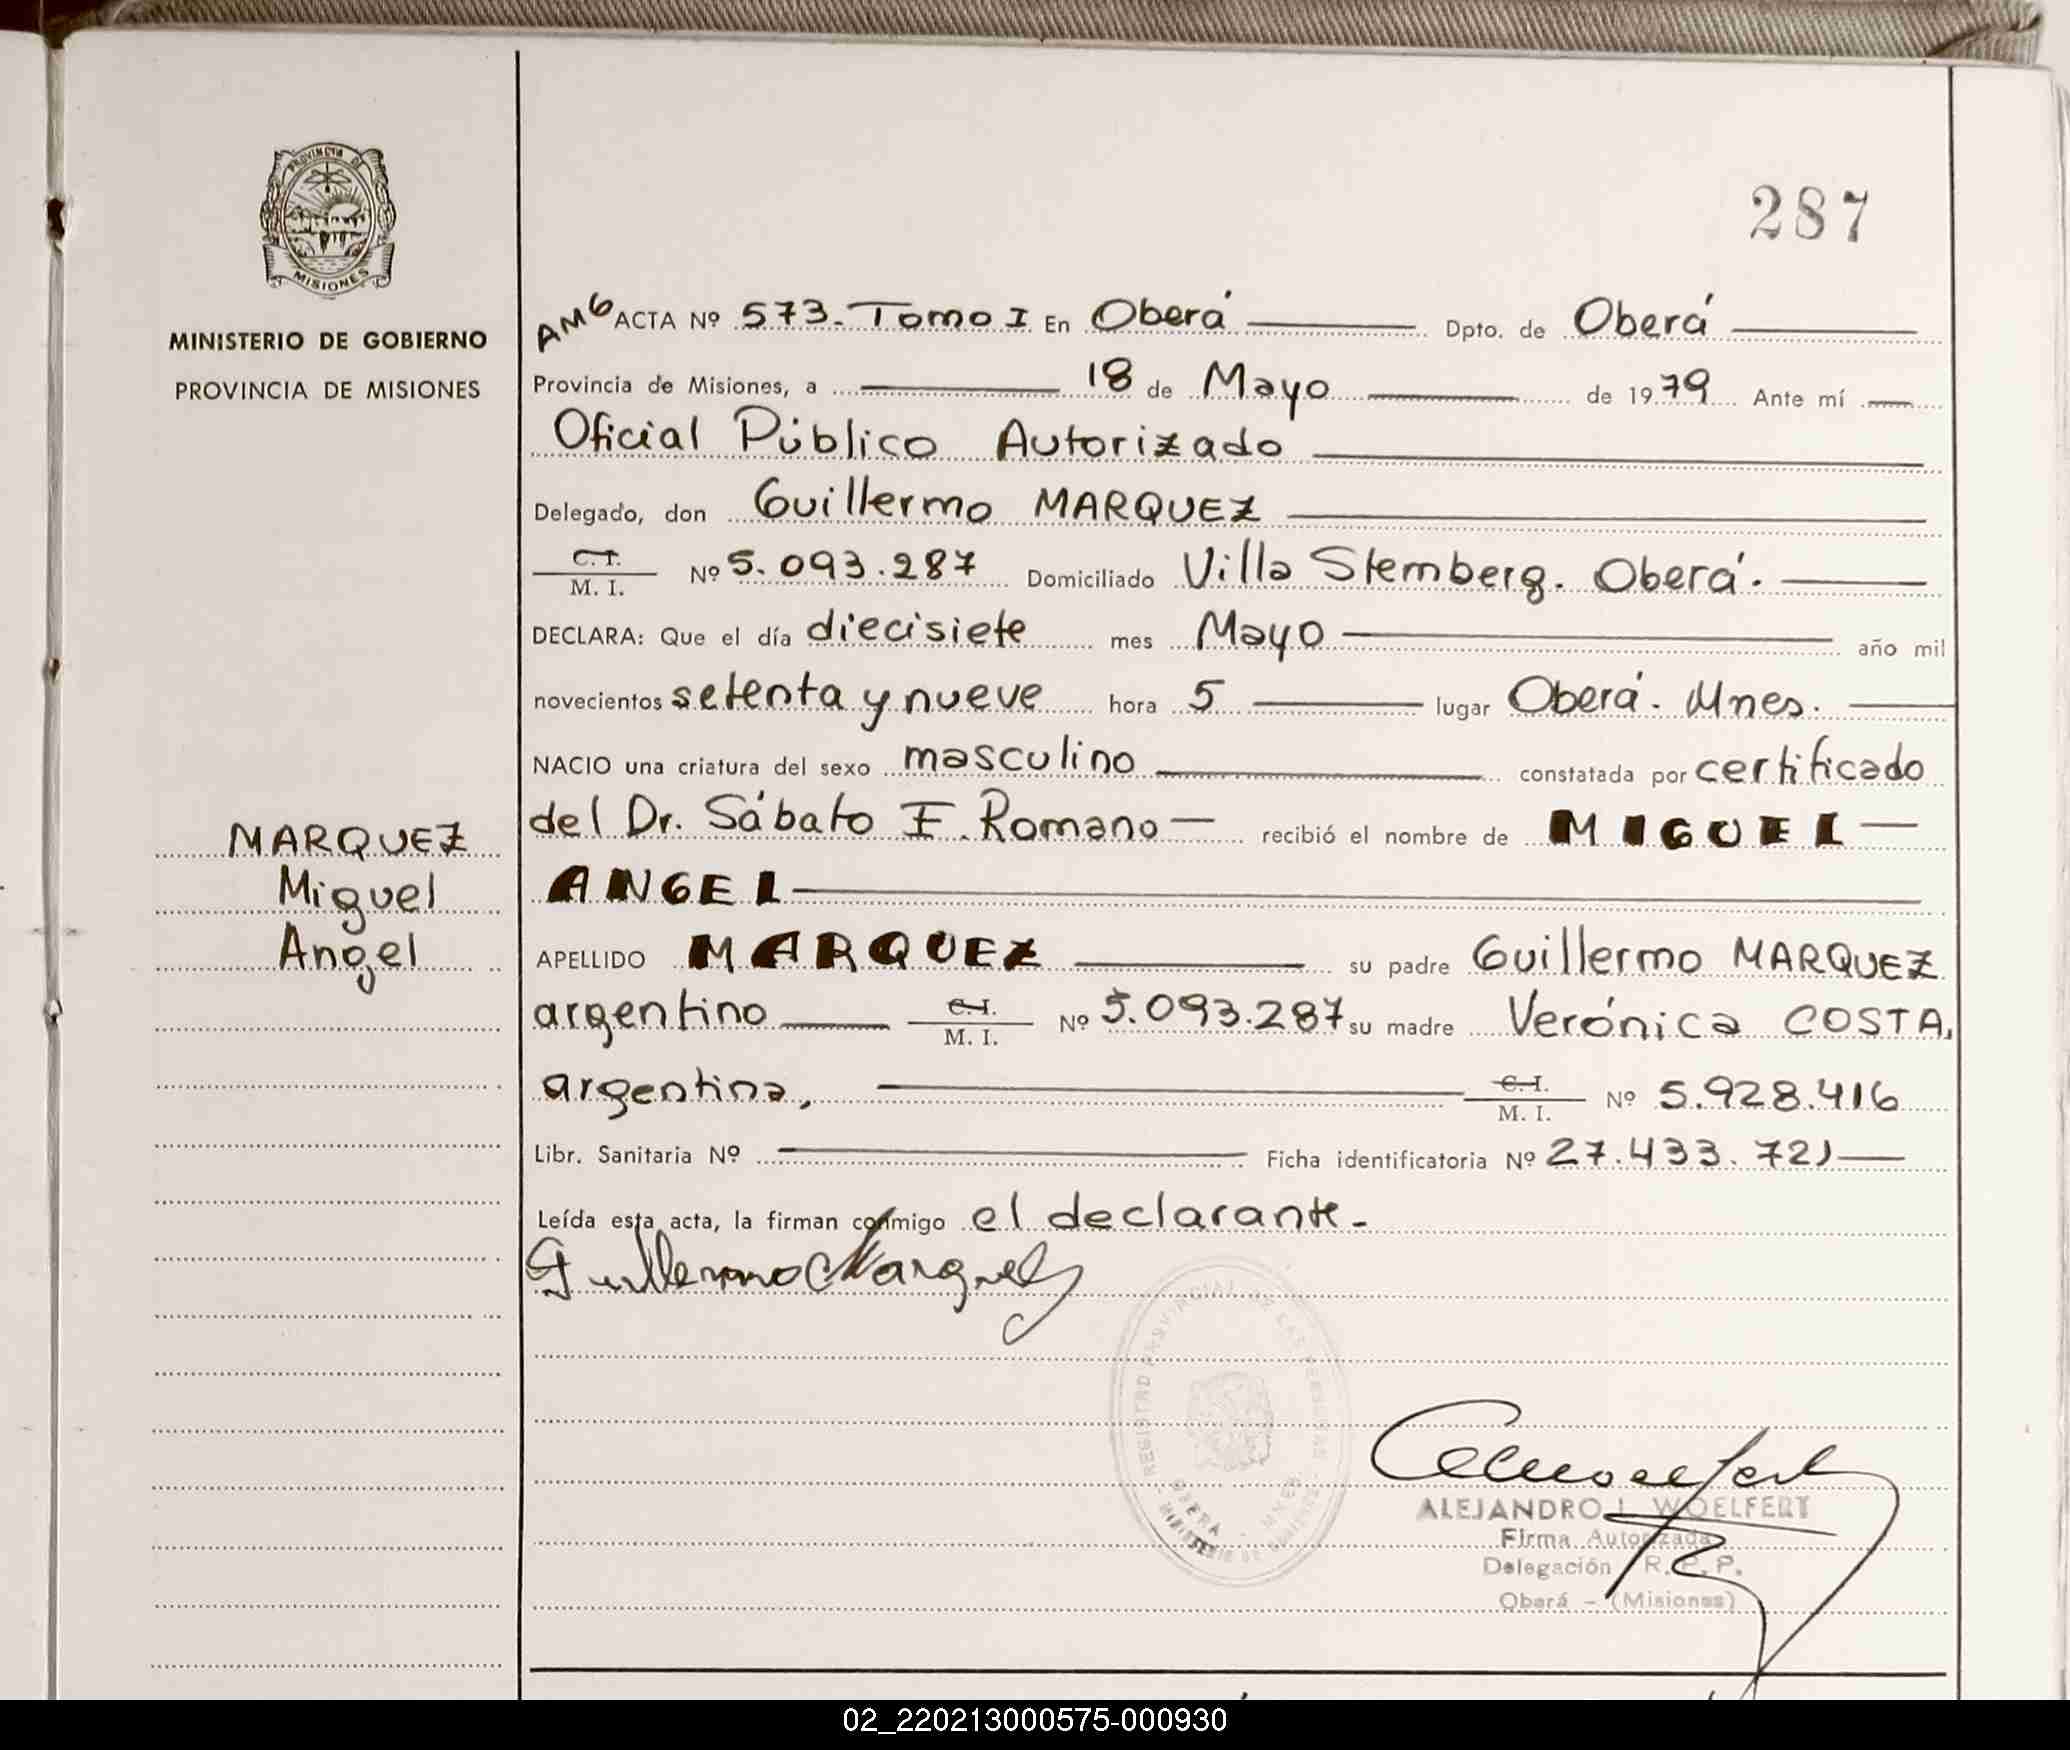 PROVINCIA DE
MISIONES
MINISTERIO DE GOBIERNO
PROVINCIA DE MISIONES
287
AMG ACTA Nº 573. Tomo I En Oberá Dpto. de Oberá
Provincia de Misiones, a 18 de Mayo de 1979 Ante mí
Oficial Público Autorizado
Delegado, don Guillermo MARQUEZ
C. I. / M. I. Nº 5.093.287 Domiciliado Villa Stemberg. Oberá.
DECLARA: Que el día diecisiete mes Mayo año mil
novecientos setenta y nueve hora 5 lugar Oberá. Mnes.
NACIO una criatura del sexo masculino constatada por certificado
del Dr. Sábato F. Romano recibió el nombre de MIGUEL
ANGEL
APELLIDO MARQUEZ su padre Guillermo MARQUEZ
argentino C. I. / M. I. Nº 5.093.287 su madre Verónica COSTA,
argentina, C. I. / M. I. Nº 5.928.416
Libr. Sanitaria Nº Ficha identificatoria Nº 27.433.721
Leída esta acta, la firman conmigo el declarante.
Guillermo Marquez
MARQUEZ
Miguel
Angel
REGISTRO PROVINCIAL DE LAS PERSONAS
OBERA - MNES
MINISTERIO DE GOBIERNO
ALEJANDRO I. WOELFERT
Firma Autorizada
Delegación R. P. P.
Oberá - (Misiones)
02_220213000575-000930